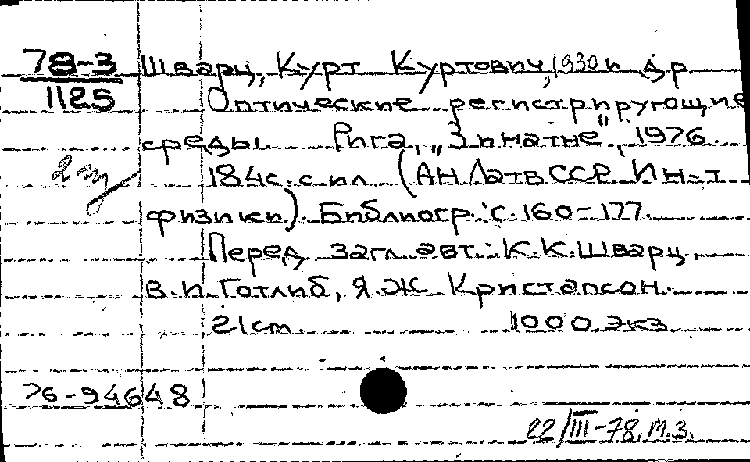 78-3
1125
Шварц, Курт Куртович, 1930 и др
Оптические регистрирующие
среды. Рига, „Зинатне", 1976.
184с. с ил (АН ЛатвССР. Ин-т
физики). Библиогр.: с. 160-177.
Перед загл. авт.: К.К. Шварц,
В.И. Готлиб, Я.Ж. Кристапсон.
21см. 1000 экз
76-94648
22/III-78. М.З.